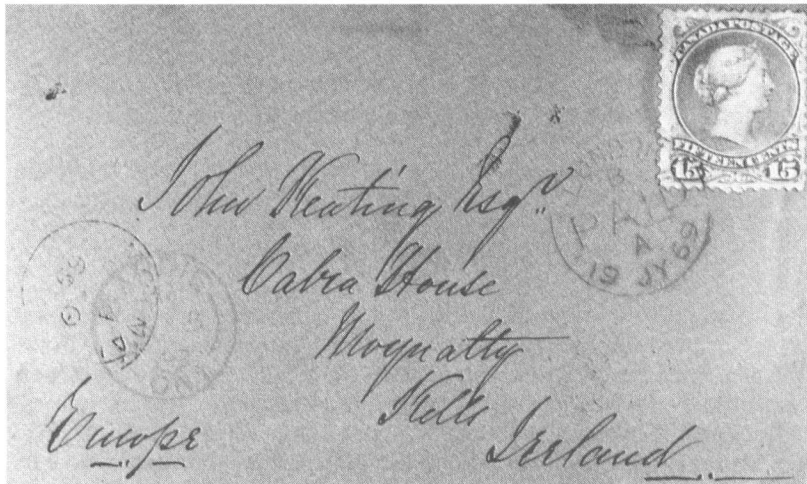 CANADA POSTAGE
FIFTEEN CENTS
15 15
B
PAID
A
19 JY 69
John Keating Esqr.
Cabra House
Moynalty
Kells
Ireland
Europe
69
ONT